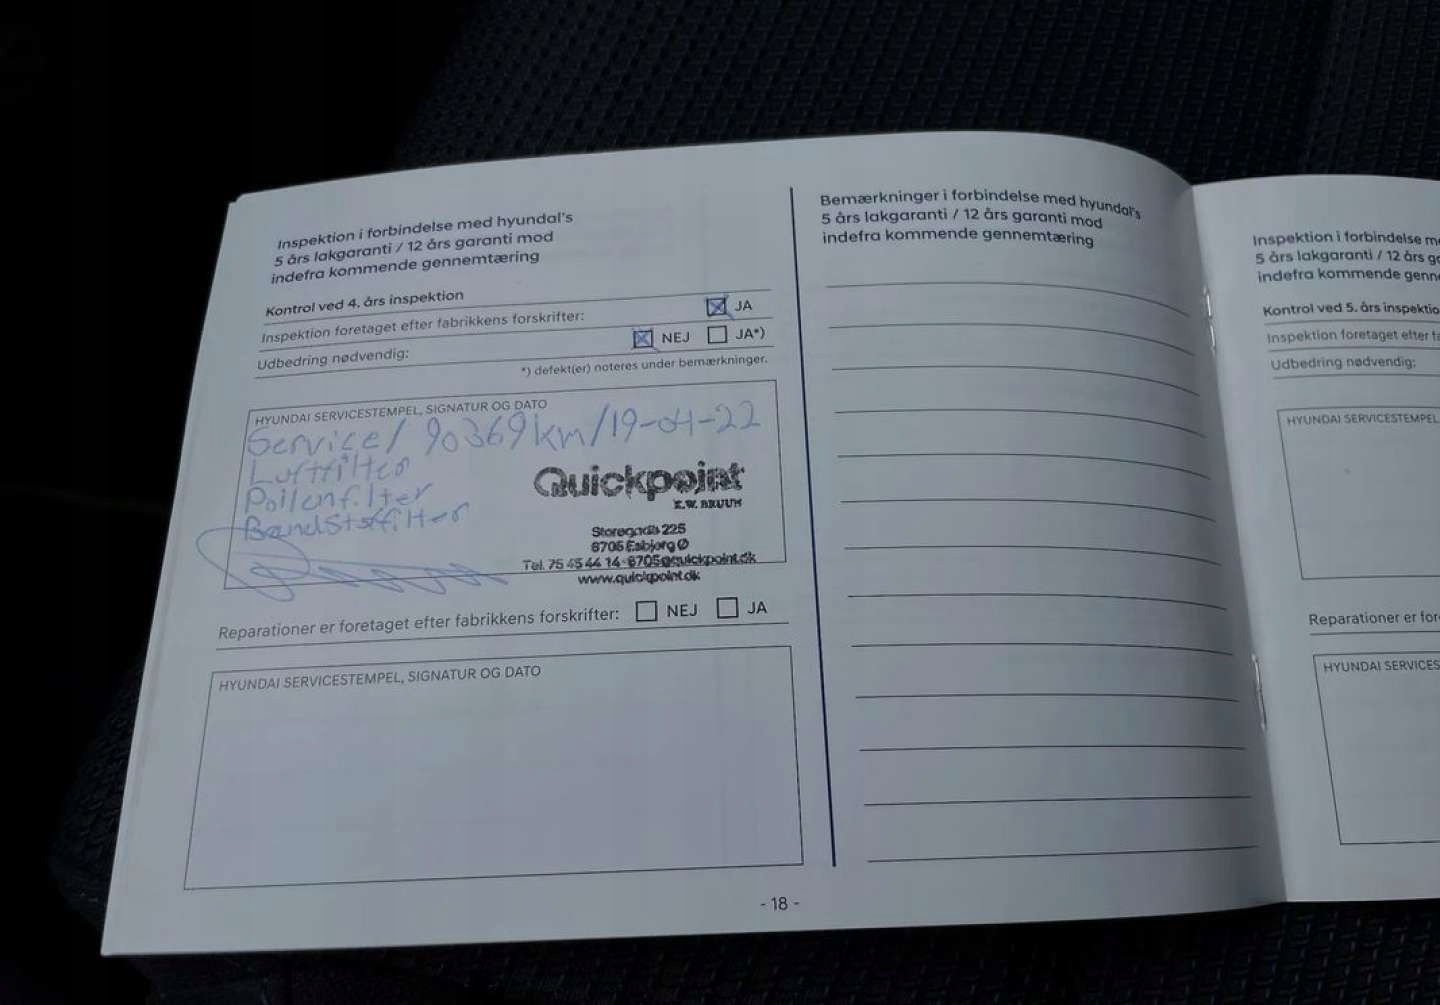 Inspektion i forbindelse med hyundai's
5 års lakgaranti / 12 års garanti mod
indefra kommende gennemtæring
Kontrol ved 4. års inspektion
Inspektion foretaget efter fabrikkens forskrifter: JA
Udbedring nødvendig: NEJ JA*)
*) defekt(er) noteres under bemærkninger.
HYUNDAI SERVICESTEMPEL, SIGNATUR OG DATO
Service/ 90369km/19-01-22
Luftfilter
Pollenfilter
Brændstoffilter
Quickpoint
K.W. BRUUN
Storegade 225
6705 Esbjerg Ø
Tel. 75 45 44 14 6705@quickpoint.dk
www.quickpoint.dk
Reparationer er foretaget efter fabrikkens forskrifter: NEJ JA
HYUNDAI SERVICESTEMPEL, SIGNATUR OG DATO
- 18 -
Bemærkninger i forbindelse med hyundai's
5 års lakgaranti / 12 års garanti mod
indefra kommende gennemtæring
Inspektion i forbindelse m
5 års lakgaranti / 12 års g
indefra kommende genn
Kontrol ved 5. års inspektio
Inspektion foretaget efter f
Udbedring nødvendig:
HYUNDAI SERVICESTEMPEL
Reparationer er for
HYUNDAI SERVICES